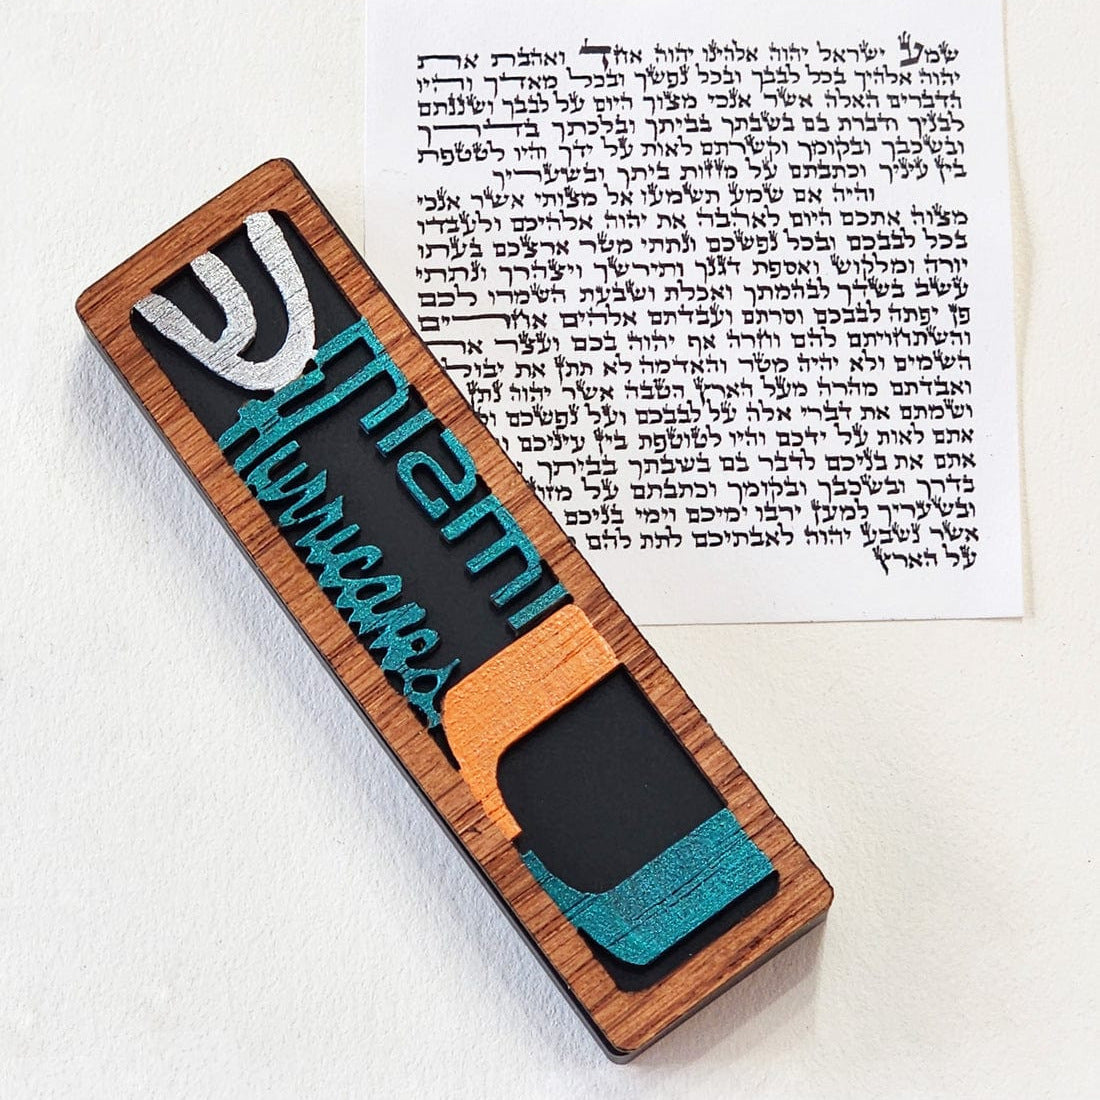 שמע ישראל יהוה אלהינו יהוה אחד ואהבת את
יהוה אלהיך בכל לבבך ובכל נפשך ובכל מאדך והיו
הדברים האלה אשר אנכי מצוך היום על לבבך ושננתם
לבניך ודברת בם בשבתך בביתך ובלכתך בדרך
ובשכבך ובקומך וקשרתם לאות על ידך והיו לטטפת
בין עיניך וכתבתם על מזזות ביתך ובשעריך
והיה אם שמע תשמעו אל מצותי אשר אנכי
מצוה אתכם היום לאהבה את יהוה אלהיכם ולעבדו
בכל לבבכם ובכל נפשכם ונתתי מטר ארצכם בעתו
יורה ומלקוש ואספת דגנך ותירשך ויצהרך ונתתי
עשב בשדך לבהמתך ואכלת ושבעת השמרו לכם
פן יפתה לבבכם וסרתם ועבדתם אלהים אחרים
והשתחויתם להם וחרה אף יהוה בכם ועצר את
השמים ולא יהיה מטר והאדמה לא תתן את
ואבדתם מהרה מעל הארץ הטבה אשר יהוה
ושמתם את דברי אלה על לבבכם ועל נפשכם
אתם לאות על ידכם והיו לטוטפת בין עיניכם
אתם את בניכם לדבר בם בשבתך בביתך
בדרך ובשכבך ובקומך וכתבתם על
ובשעריך למען ירבו ימיכם וימי בניכם
אשר נשבע יהוה לאבתיכם לתת להם
על הארץ
ש
miami
Hurricanes